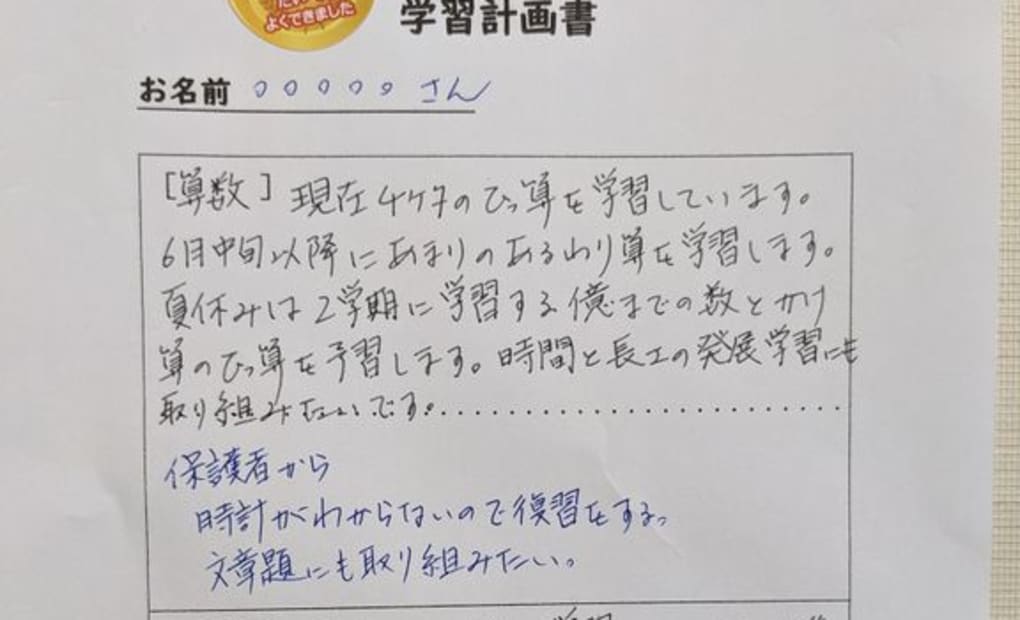 よくできました
学習計画書
お名前 ○○○○○ さん
[算数] 現在4ケタのひっ算を学習しています。
6月中旬以降にあまりのあるわり算を学習します。
夏休みは2学期に学習する億までの数とかけ
算のひっ算を予習します。時間と長さの発展学習にも
取り組みたいです。........................
保護者から
時計がわからないので復習をする。
文章題にも取り組みたい。